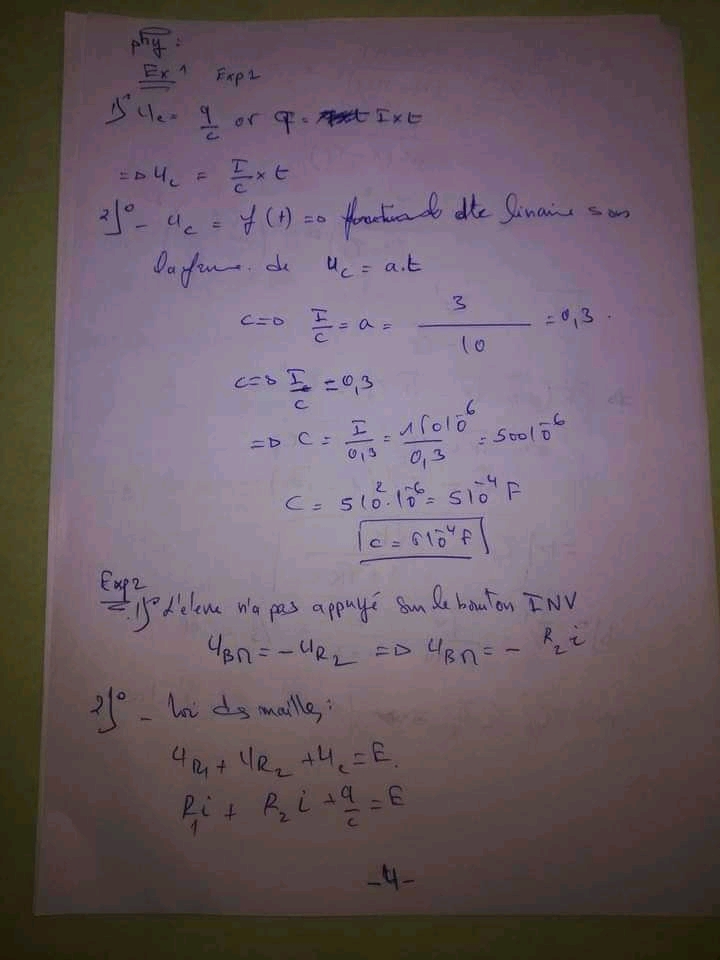 phy :
Ex 1 Exp1
1)° Uc = q/c or q = I×t
=> Uc = I/c × t
2)° - uc = f(t) => dte linaire son
de uc = a.t
c=> I/c = a = 3/10 = 0,3.
c=> I/c = 0,3
=> C = I/0,3 = 150 10^-6/0,3 = 500 10^-6
C = 5 10^2 . 10^-6 = 5 10^-4 F
C = 5 10^-4 F
Exp2
1)° L'eleve n'a pas appuyé sur le bouton INV
UBM = - UR2 => UBM = - R2 i
2)° - Loi des mailles :
UR1 + UR2 + Uc = E.
R1 i + R2 i + q/c = E
-4-